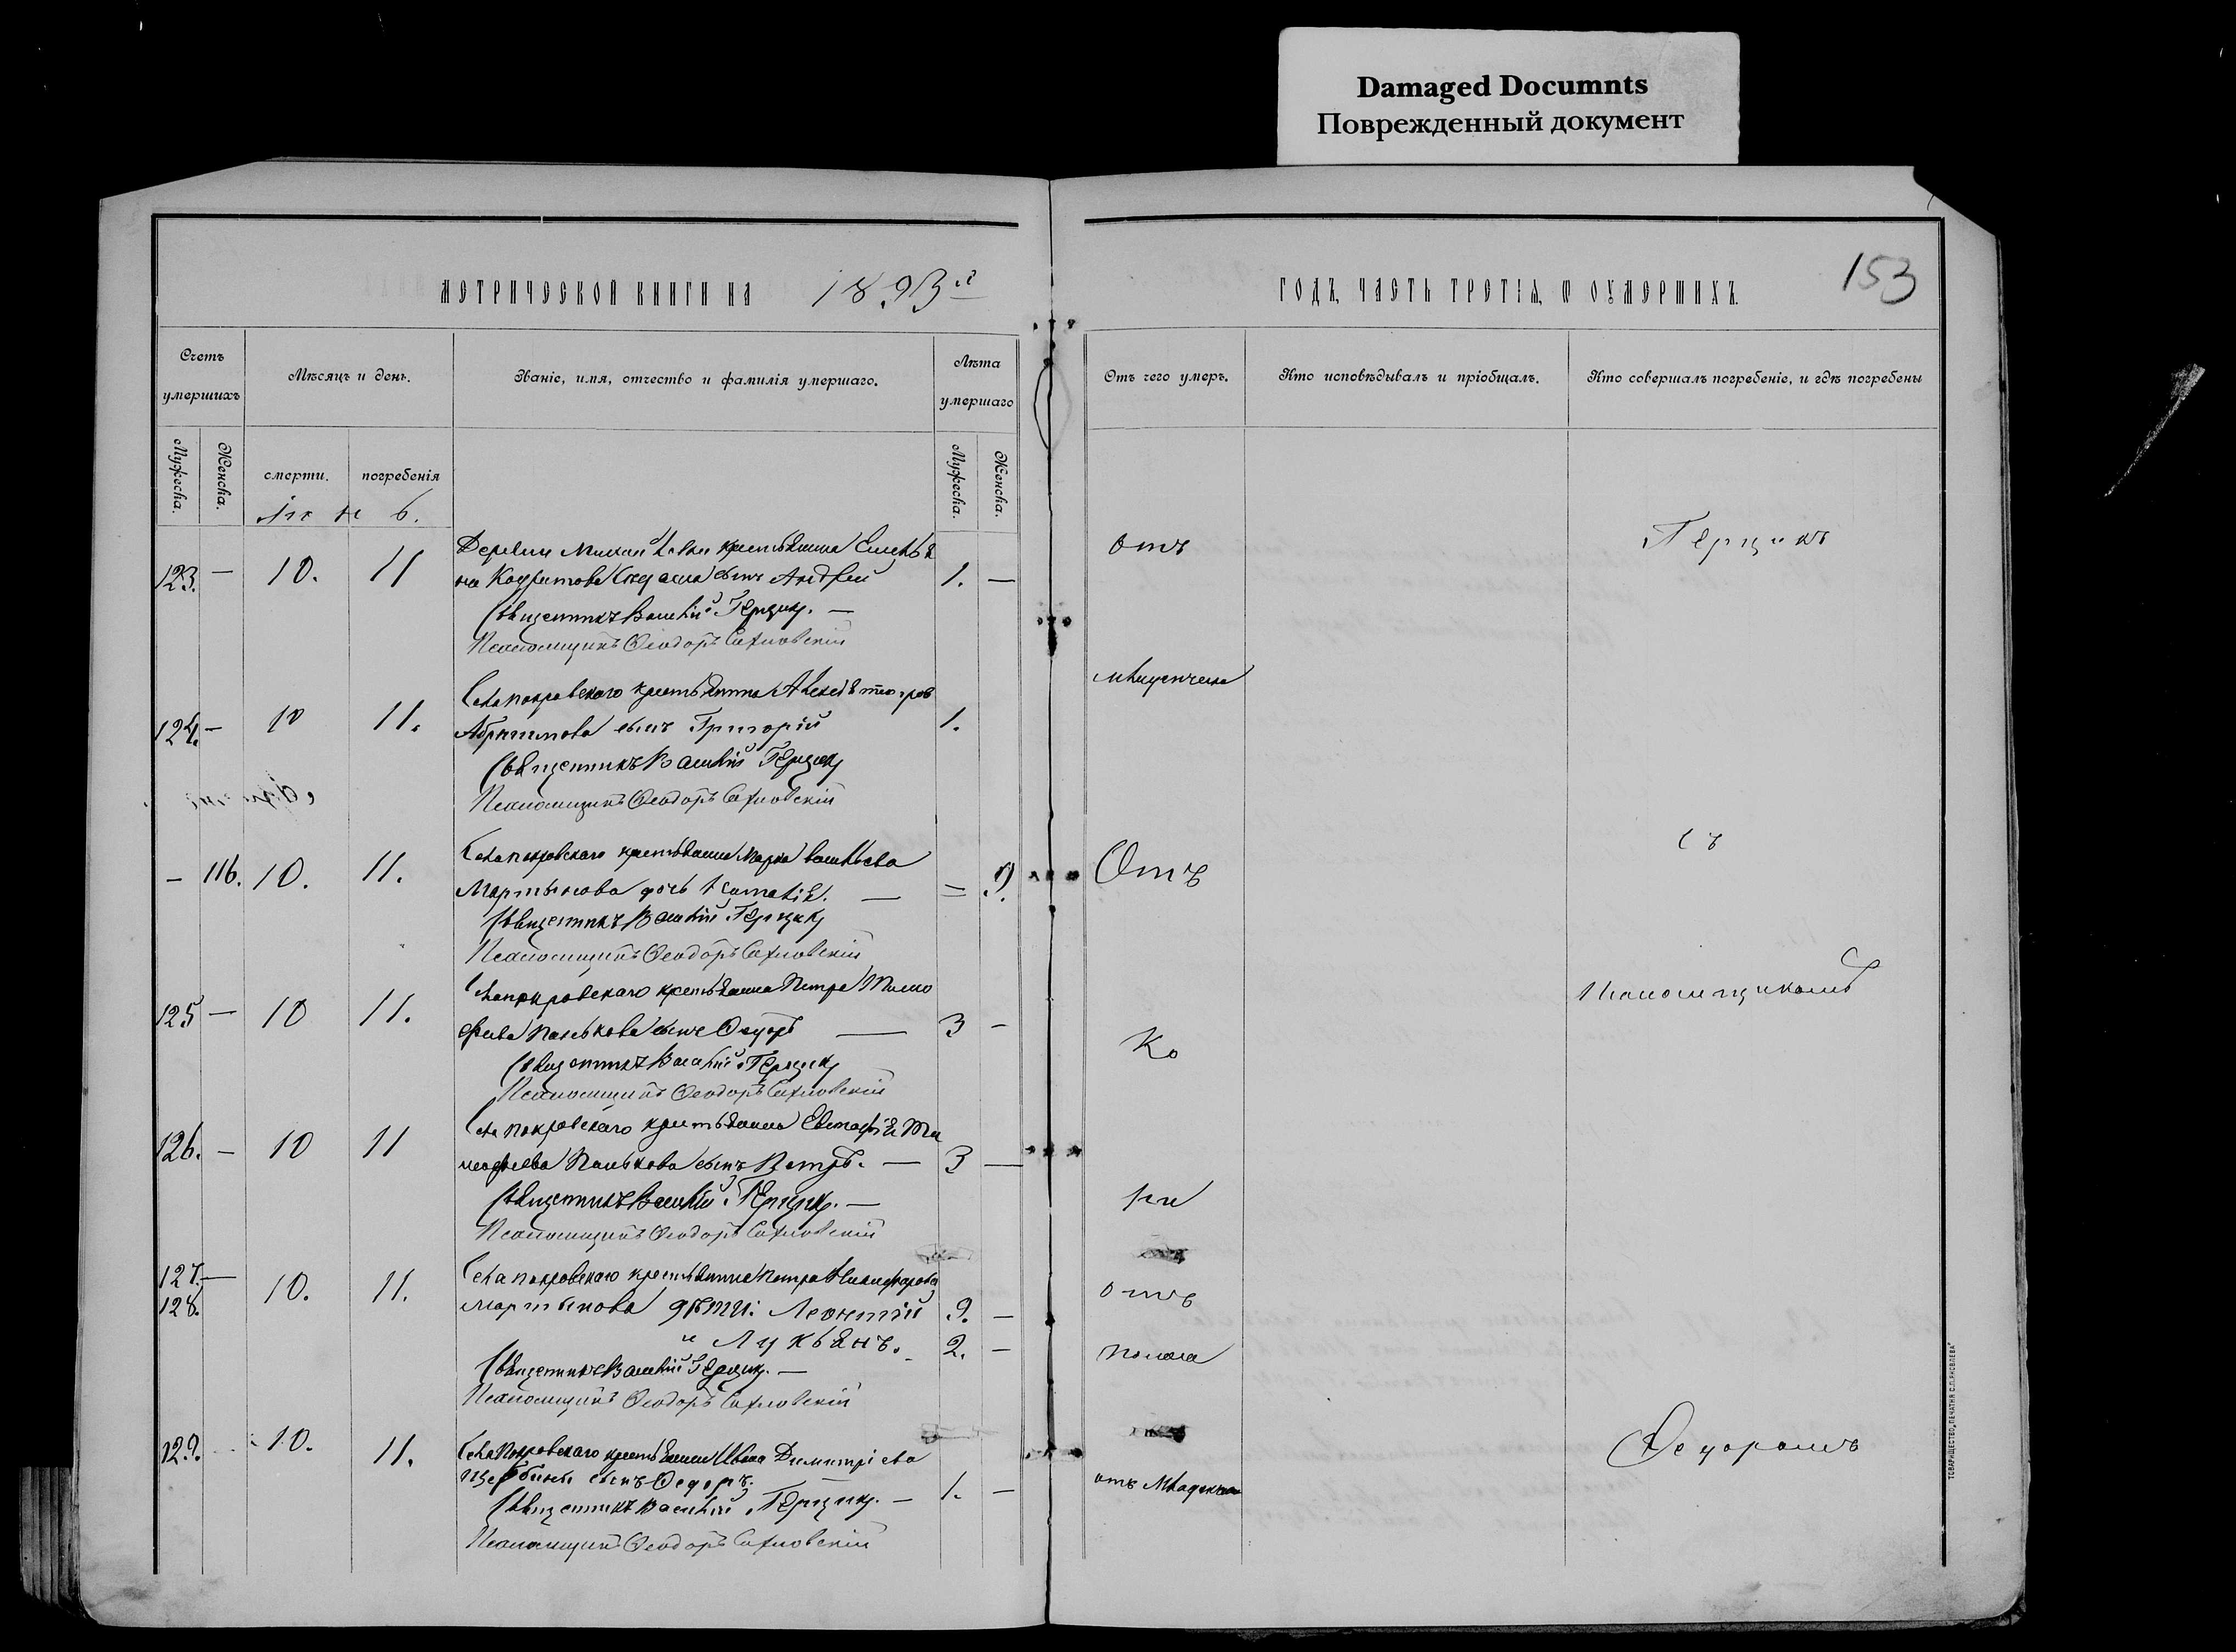 Damaged Documnts
Поврежденный документ
МЕТРИЧЕСКОЙ КНИГИ НА 1893й
ГОДЪ, ЧАСТЬ ТРЕТІЯ, Ѡ ОУМЕРШИХЪ.
153
Счетъ умершихъ
Мѣсяцъ и день.
Званіе, имя, отчество и фамилія умершаго.
Лѣта умершаго
Отъ чего умеръ.
Кто исповѣдывалъ и пріобщалъ.
Кто совершалъ погребеніе, и гдѣ погребены
Мужеска.
Женска.
смерти.
погребенія
Мужеска.
Женска.
123. — 10. 11
Деревни крестьянина
сынъ Андрей 1. —
Священникъ Василій Герцик. —
Псаломщикъ Ѳеодоръ Сахновскій
отъ
Герцикъ
124. — 10 11.
Села Покровскаго крестьянина
сынъ Григорій 1.
Священникъ Василій Герцик
Псаломщикъ Ѳеодоръ Сахновскій
младенческ
— 116. 10. 11.
Села Покровскаго крестьянина Марка Васильева
Мартынова дочь Наталія. — = 9.
Священникъ Василій Герцик
Псаломщикъ Ѳеодоръ Сахновскій
Отъ
съ
125 — 10 11.
Села Покровскаго крестьянина Петра Тимо
феева Панькова сынъ Ѳедоръ — 3 —
Священникъ Василій Герцик
Псаломщикъ Ѳеодоръ Сахновскій
Ко
Псаломщикомъ
126. — 10 11
Села Покровскаго крестьянина Евстафія Ти
мофеева Панькова сынъ Петръ. — 3 —
Священникъ Василій Герцик. —
Псаломщикъ Ѳеодоръ Сахновскій
ри
127. —
128. 10. 11.
Села Покровскаго крестьянина Петра Никифорова
Мартынова дѣти: Леонтій 9. —
и Лукьянъ. 2. —
Священникъ Василій Герцик. —
Псаломщикъ Ѳеодоръ Сахновскій
отъ
поноса
129. 10. 11.
Села Покровскаго крестьянина Ивана Димитріева
Щербины сынъ Ѳедоръ.
Священникъ Василій Герцик. — 1. —
Псаломщикъ Ѳеодоръ Сахновскій
отъ младенч
Ѳедоромъ
ТОВАРИЩЕСТВО „ПЕЧАТНЯ С.П.ЯКОВЛЕВА"